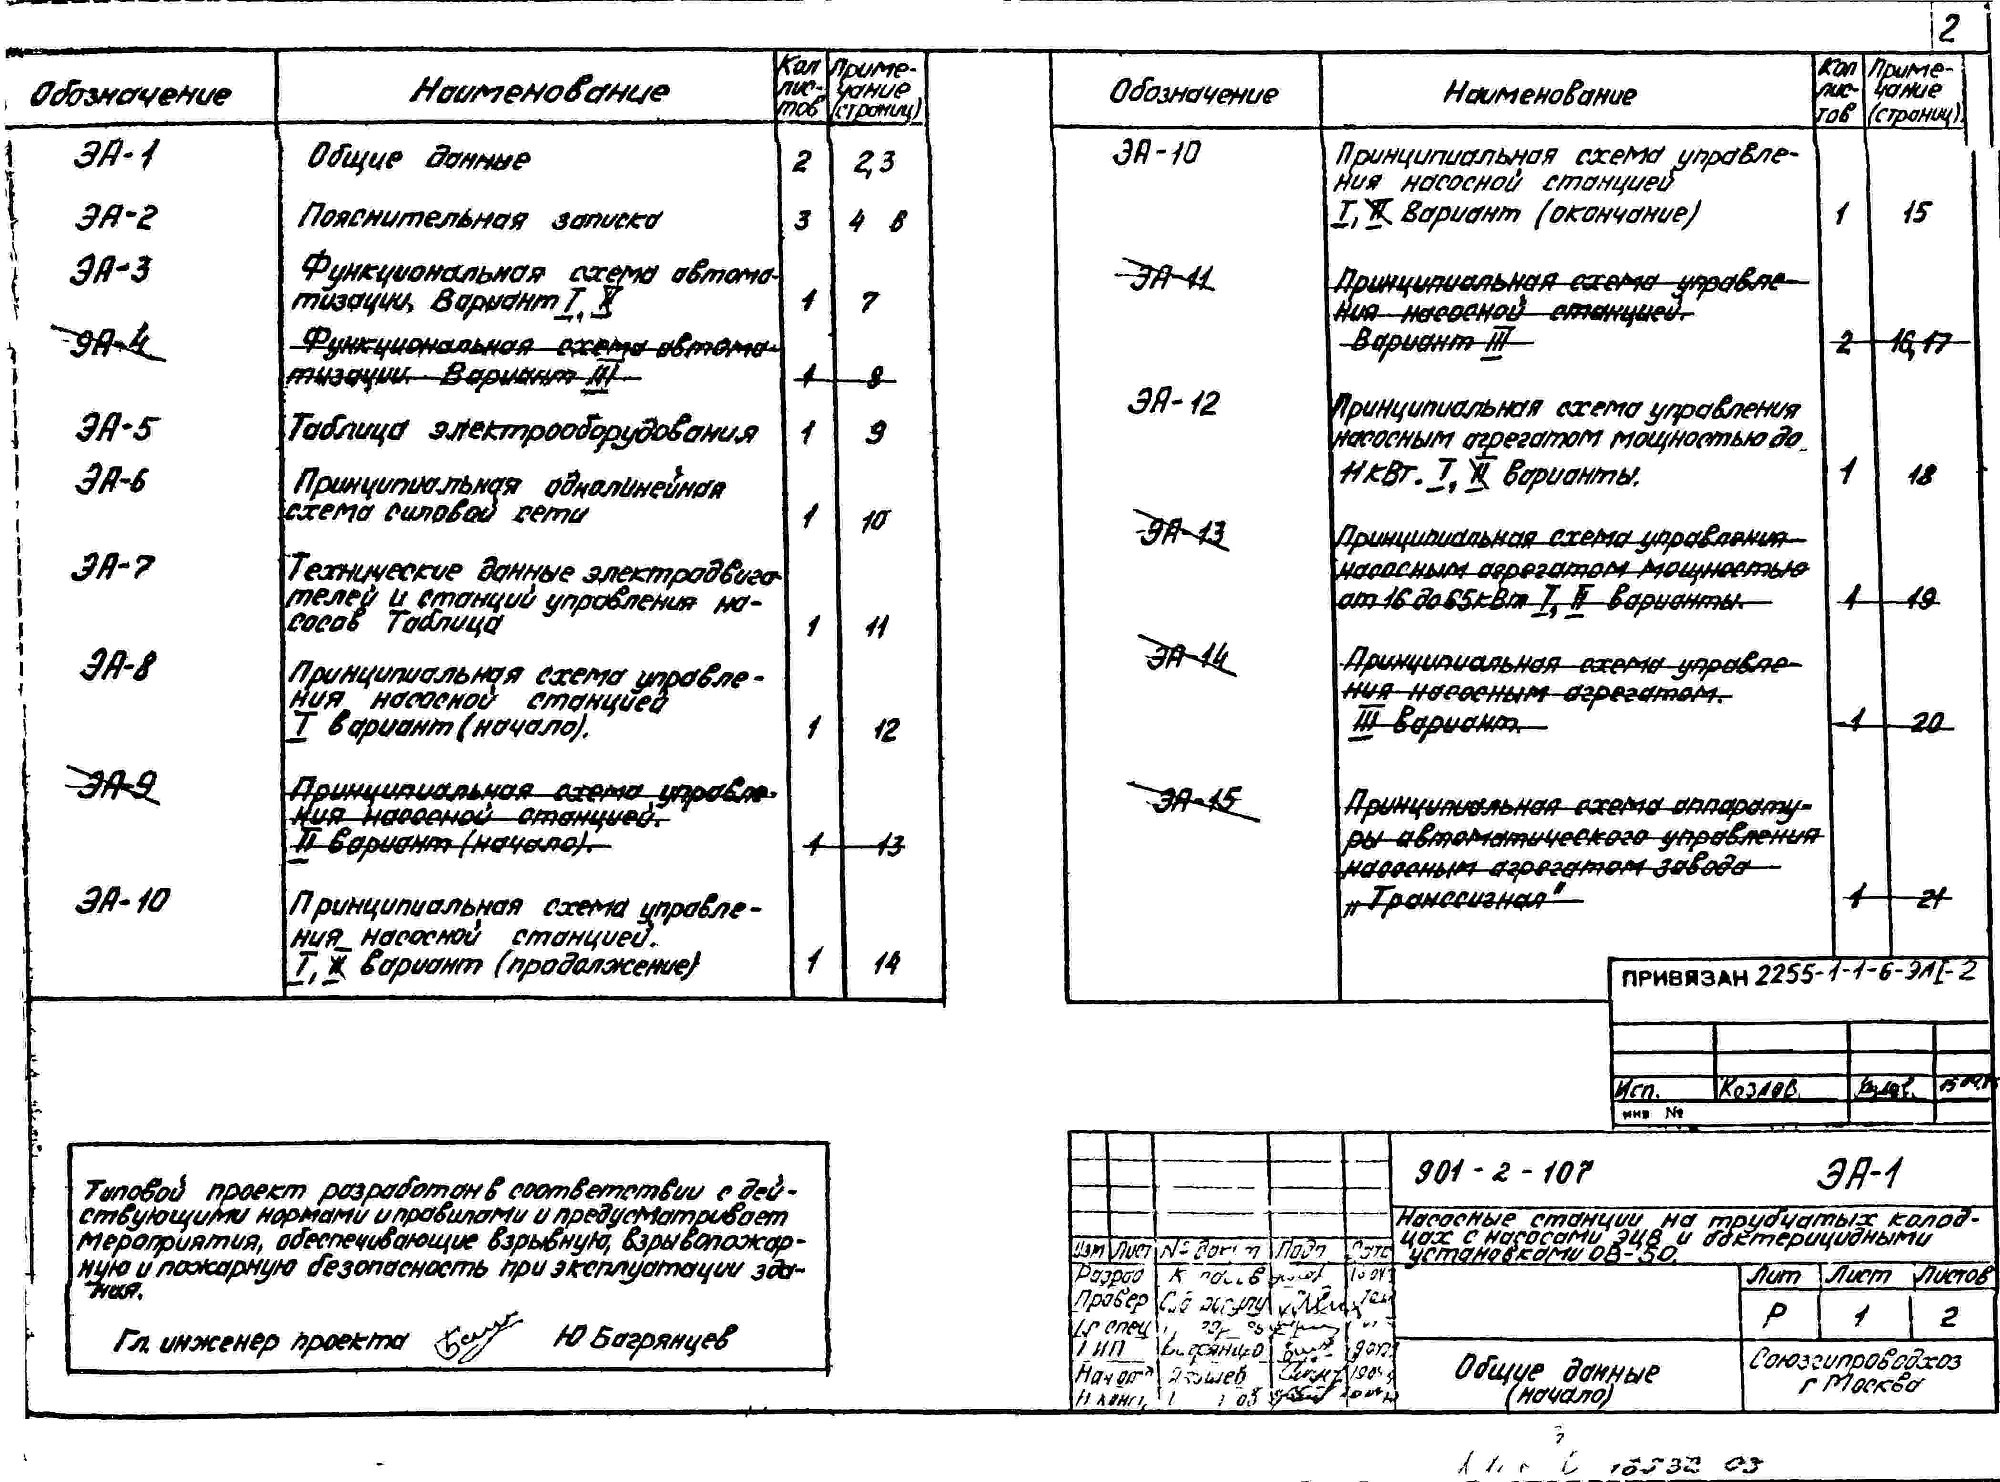 2
Обозначение Наименование Кол лис- тов Приме- чание (страниц)
ЭА-1 Общие данные 2 2,3
ЭА-2 Пояснительная записка 3 4 6
ЭА-3 Функциональная схема автома-
тизации, Вариант I, II 1 7
ЭА-4 Функциональная схема автома-
тизации. Вариант III 1 8
ЭА-5 Таблица электрооборудования 1 9
ЭА-6 Принципиальная однолинейная
схема силовой сети 1 10
ЭА-7 Технические данные электродвига-
телей и станций управления на-
сосов Таблица 1 11
ЭА-8 Принципиальная схема управле-
ния насосной станцией
I вариант (начало). 1 12
ЭА-9 Принципиальная схема управле-
ния насосной станцией.
II вариант (начало). 1 13
ЭА-10 Принципиальная схема управле-
ния насосной станцией.
I, II вариант (продолжение) 1 14
Обозначение Наименование Кол лис- тов Приме- чание (страниц).
ЭА-10 Принципиальная схема управле-
ния насосной станцией
I, II вариант (окончание) 1 15
ЭА-11 Принципиальная схема управле-
ния насосной станцией.
Вариант III 2 16,17
ЭА-12 Принципиальная схема управления
насосным агрегатом мощностью до
11 кВт. I, II варианты. 1 18
ЭА-13 Принципиальная схема управления
насосным агрегатом мощностью
от 16 до 65 кВт I, II варианты. 1 19
ЭА-14 Принципиальная схема управле-
ния насосным агрегатом.
III вариант. 1 20
ЭА-15 Принципиальная схема аппарату-
ры автоматического управления
насосным агрегатом завода
„Транссигнал" 1 21
ПРИВЯЗАН 2255-1-1-6-ЭАI-2
Исп. Козлов.
инв №
Типовой проект разработан в соответствии с дей-
ствующими нормами и правилами и предусматривает
мероприятия, обеспечивающие взрывную, взрывопожар-
ную и пожарную безопасность при эксплуатации зда-
ния.
Гл. инженер проекта Ю Багрянцев
901-2-107 ЭА-1
Насосные станции на трубчатых колод-
цах с насосами ЭЦВ и бактерицидными
установками ОВ-50.
Изм Лист № докум Подп Дата
Разраб
Провер
Гл спец
ГИП
Нач отд
Н конт.
Лит Лист Листов
Р 1 2
Общие данные
(начало)
Союзгипроводхоз
г Москва